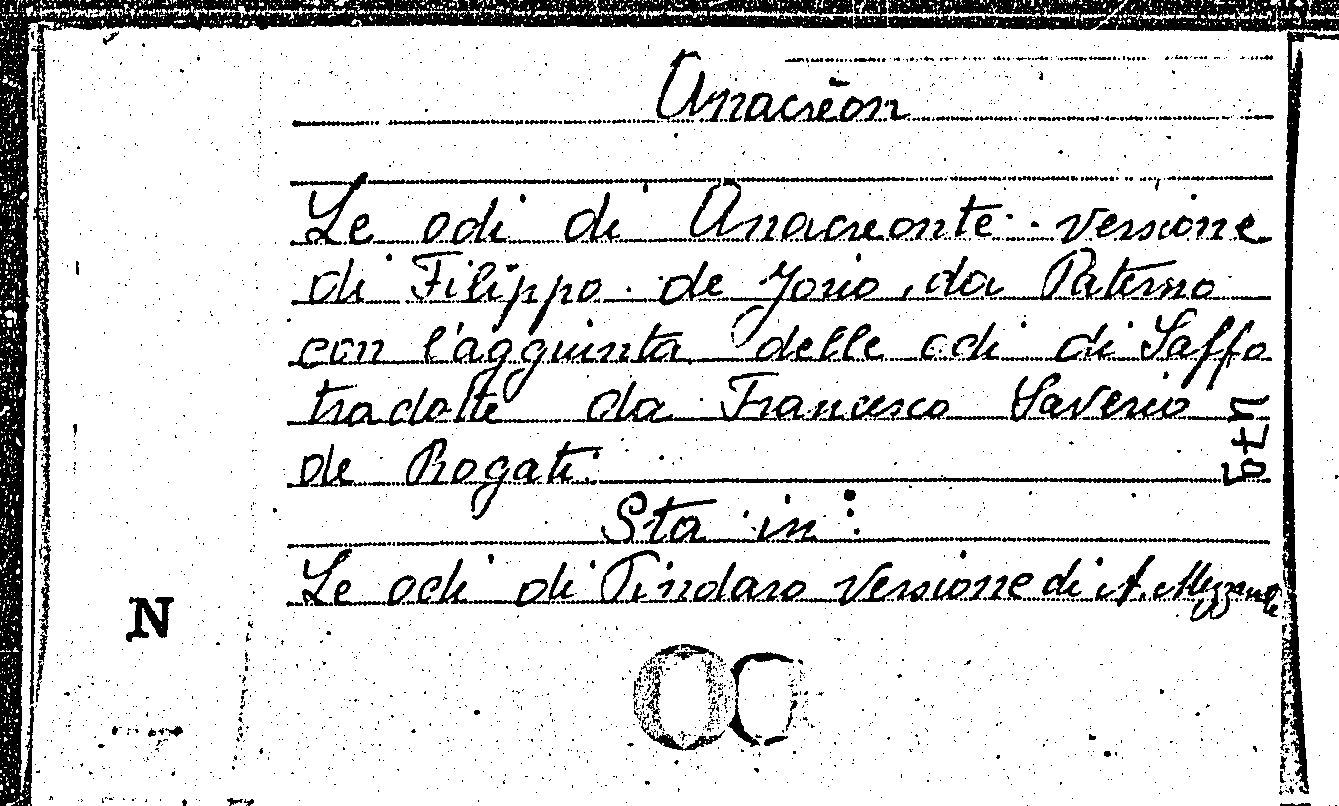 Anacreon
Le odi di Anacreonte. versione
di Filippo de Jorio, da Paterno
con l'aggiunta delle odi di Saffo
tradotte da Francesco Saverio
de Rogati.
Sta in:
Le odi di Pindaro versione di A. Mezzanotte
N